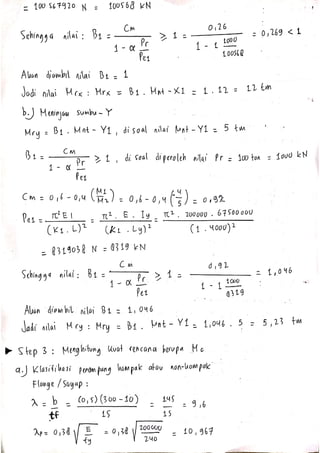 = 100 567920 N = 100568 kN
Sehingga nilai : B1 = Cm / (1 - α Pr/Pe1) ≥ 1 = 0,26 / (1 - 1 1000/100568) = 0,269 < 1
Akan diambil nilai B1 = 1
Jadi nilai Mrx : Mrx = B1 . Mnt - X1 = 1 . 12 = 12 tm
b.) Meninjau Sumbu - Y
Mry = B1 . Mnt - Y1 , di soal nilai Mnt - Y1 = 5 tm
B1 = Cm / (1 - α Pr/Pe1) ≥ 1 , di soal diperoleh nilai Pr = 100 ton = 1000 kN
Cm = 0,6 - 0,4 (M1/M2) = 0,6 - 0,4 (-4/5) = 0,92
Pe1 = π² E I / (K1 . L)² = π² . E . Iy / (K1 . Ly)² = π² . 200000 . 67500000 / (1 . 4000)²
= 8319038 N = 8319 kN
Sehingga nilai : B1 = Cm / (1 - α Pr/Pe1) ≥ 1 = 0,92 / (1 - 1 1000/8319) = 1,046
Akan diambil nilai B1 = 1,046
Jadi nilai Mry : Mry = B1 . Mnt - Y1 = 1,046 . 5 = 5,23 tm
► Step 3 : Menghitung kuat rencana berupa Mc
a.) Klasifikasi penampang kompak atau non-kompak
Flange / Sayap :
λ = b/tf = (0,5)(300 - 10) / 15 = 145/15 = 9,6
λp = 0,38 √(E/fy) = 0,38 √(200000/240) = 10,967